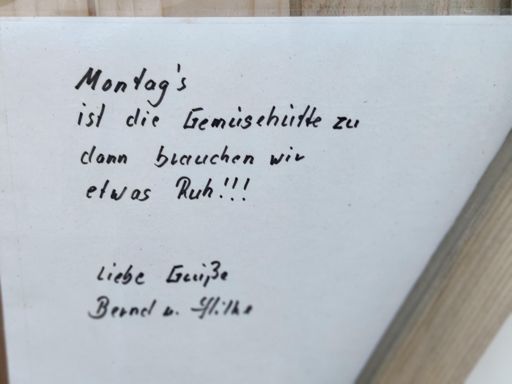 Montag's
ist die Gemüsehütte zu
dann brauchen wir
etwas Ruh!!!
Liebe Grüße
Bernd u.